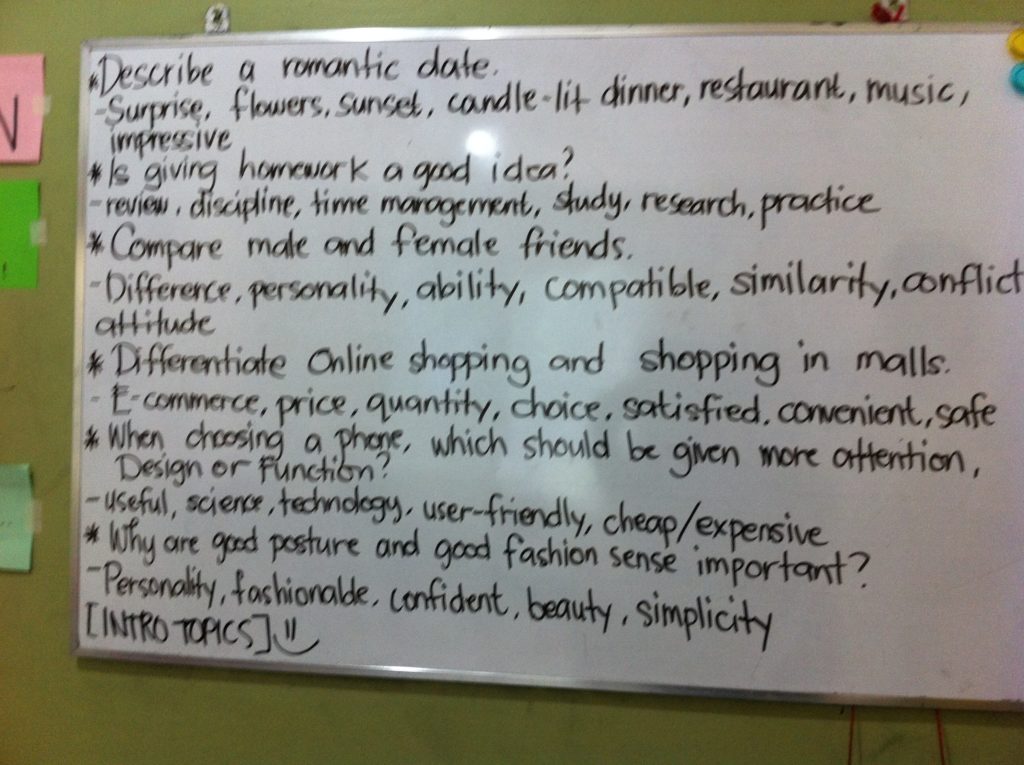 N
*Describe a romantic date.
-Surprise, flowers, sunset, candle-lit dinner, restaurant, music,
impressive
*Is giving homework a good idea?
-review, discipline, time management, study, research, practice
*Compare male and female friends.
-Difference, personality, ability, compatible, similarity, conflict
attitude
*Differentiate Online shopping and shopping in malls.
-E-commerce, price, quantity, choice, satisfied, convenient, safe
*When choosing a phone, which should be given more attention,
Design or Function?
-useful, science, technology, user-friendly, cheap/expensive
*Why are good posture and good fashion sense important?
-Personality, fashionable, confident, beauty, simplicity
[INTRO TOPICS]